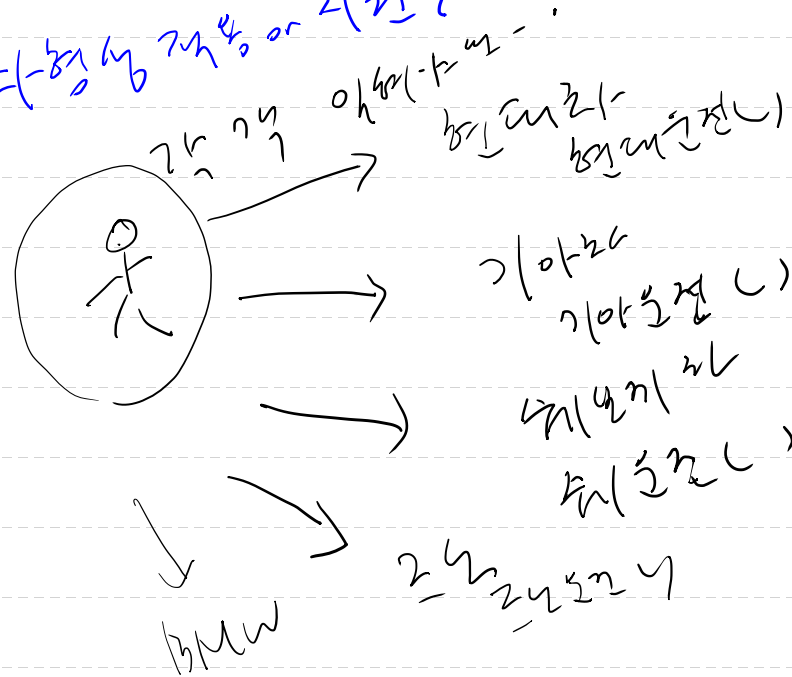 다형성 적용 or
각각
현대차
현대운전( )
기아차
기아운전( )
쉐보레차
쉐운전( )
르노
르노운전
BMW